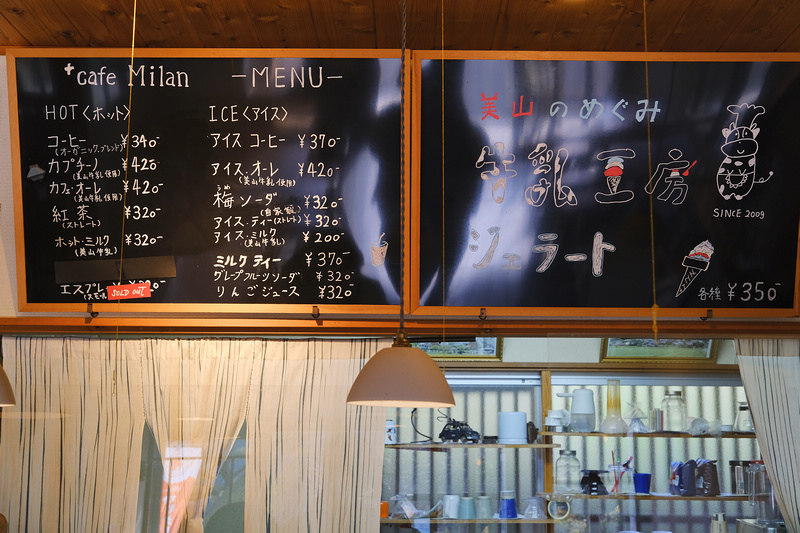 cafe Milan -MENU-
HOT〈ホット〉
コーヒー ¥340-
(オーガニック.ブレンド)
カプチーノ ¥420-
(美山牛乳使用)
カフェ・オーレ ¥420-
(美山牛乳使用)
紅茶 ¥320-
(ストレート)
ホット・ミルク ¥320-
(美山牛乳)
エスプレ
SOLD OUT
ICE〈アイス〉
アイス コーヒー ¥370-
アイス・オーレ ¥420-
(美山牛乳使用)
うめ
梅ソーダ ¥320-
(自家製)
アイス・ティー(ストレート) ¥320-
アイス・ミルク ¥200-
(美山牛乳)
ミルク ティー ¥370-
グレープフルーツソーダ ¥320-
りんごジュース ¥320-
美山のめぐみ
牛乳工房
ジェラート
SINCE 2009
各種 ¥350-